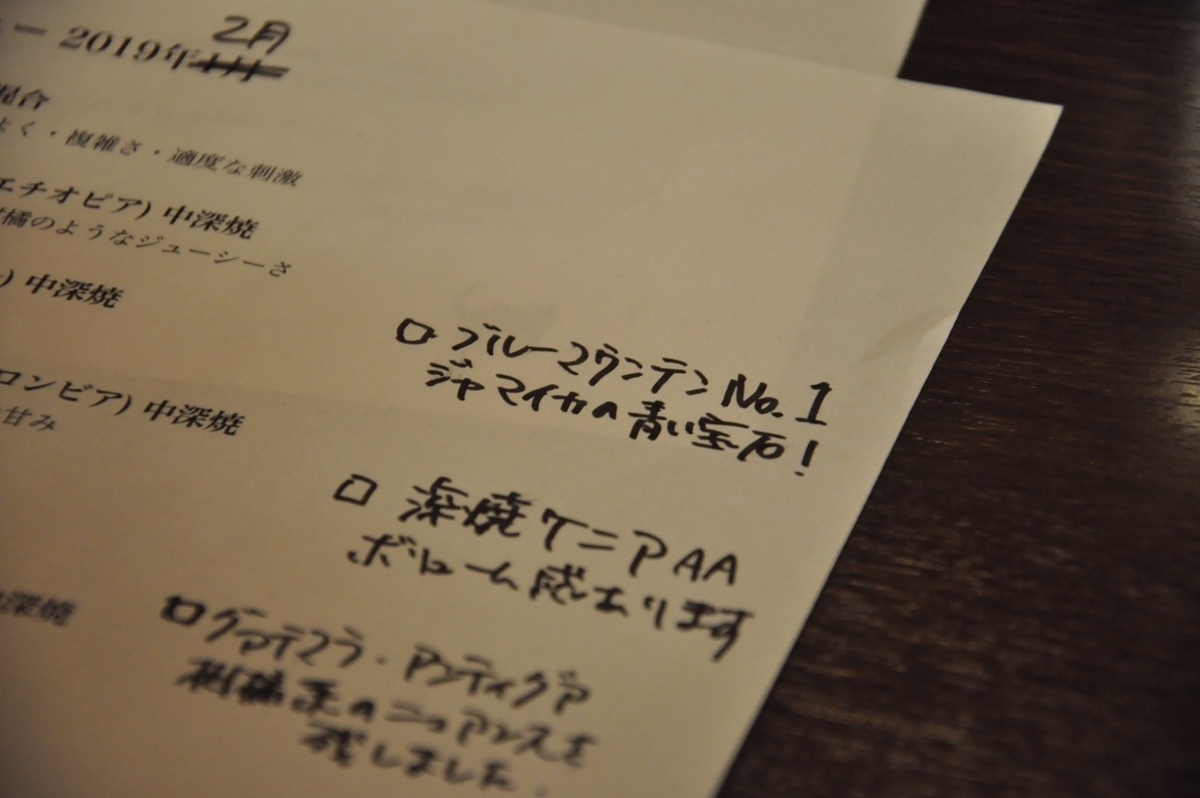 2月
ー 2019年
混合
よく・複雑さ・適度な刺激
エチオピア) 中深焼
橘のようなジューシーさ
) 中深焼
ロンビア) 中深焼
甘み
深焼
□ ブルーマウンテン No.1
ジャマイカの青い宝石!
□ 深焼ケニアAA
ボリューム感あります
□グァテマラ・アンティグア
柑橘系のニュアンスを
残しました.